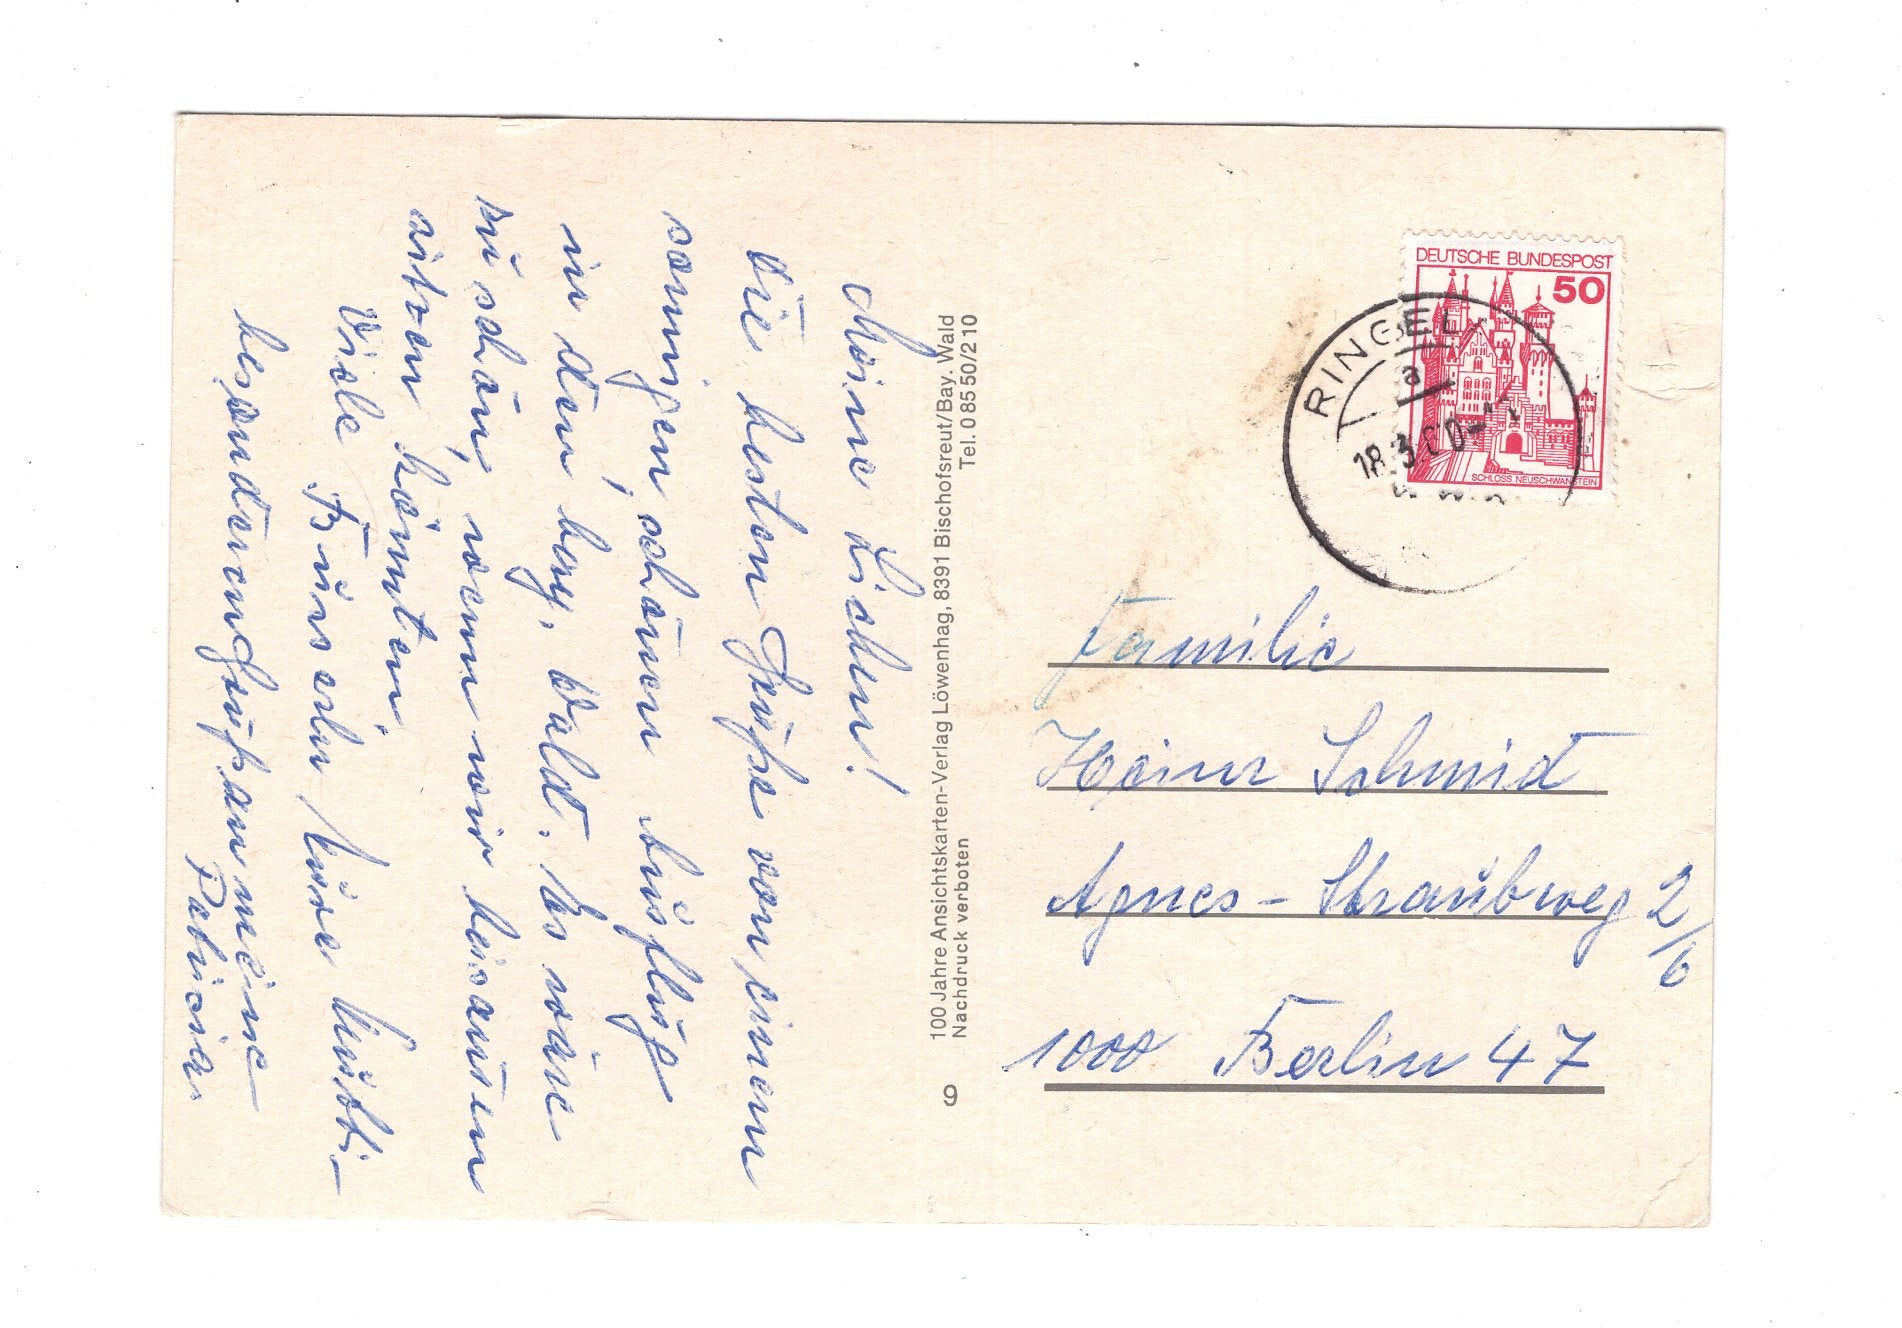 Meine Lieben!
Die besten Grüße von einem
sonnigen, schönen Ausflug
in den bay. Wald. Es wäre
so schön, wenn wir beisamen
sitzen könnten.
Viele Busserln Eure
besonderen Gruß an meine
Patricia
100 Jahre Ansichtskarten-Verlag Löwenhag, 8391 Bischofsreut/Bay. Wald
Nachdruck verboten Tel. 0 85 50/2 10
9
DEUTSCHE BUNDESPOST
50
SCHLOSS NEUSCHWANSTEIN
RINGEL
a
18.3.80
Familie
Heinz Schmid
Agnes-Straubweg 2/6
1000 Berlin 47